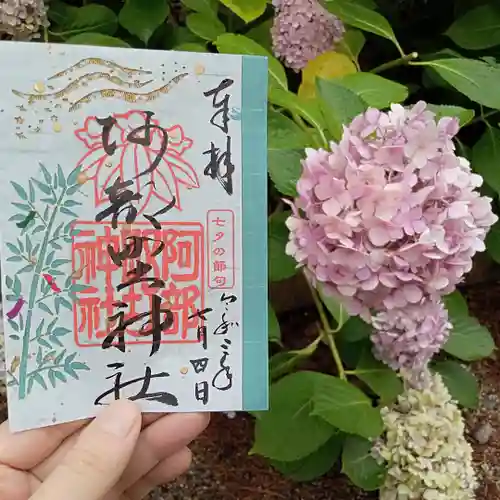 奉拝
七夕の節句
令和三年
七月四日
阿部野神社
阿部
野
神社